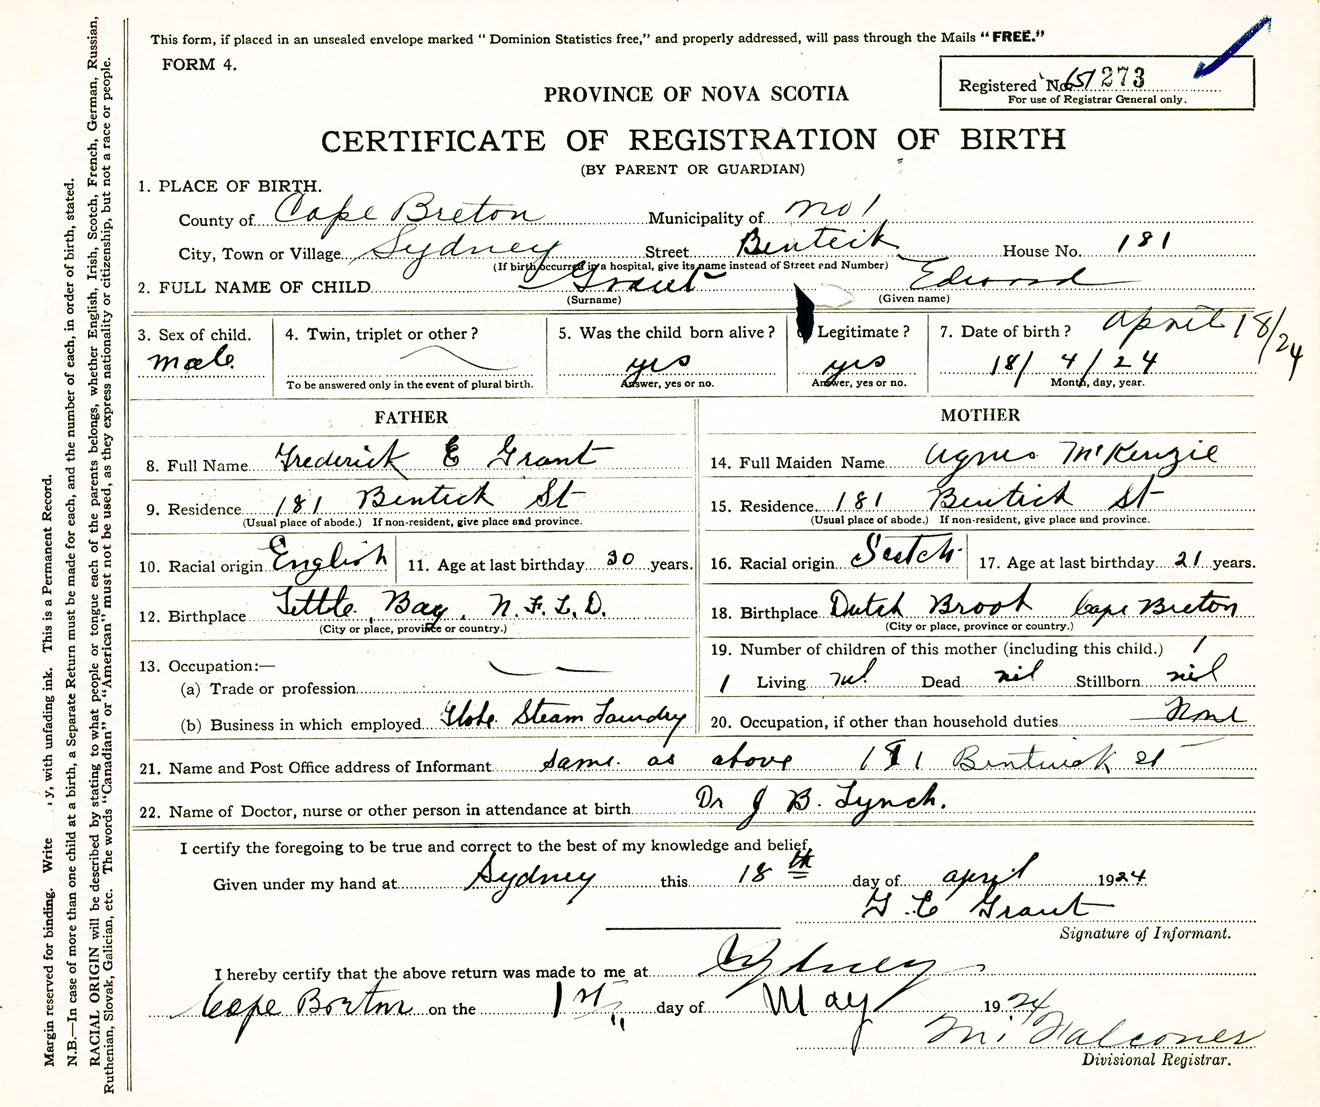 This form, if placed in an unsealed envelope marked “ Dominion Statistics free,” and properly addressed, will pass through the Mails “ FREE.”
FORM 4.
Registered No. 273
For use of Registrar General only.
PROVINCE OF NOVA SCOTIA
CERTIFICATE OF REGISTRATION OF BIRTH
(BY PARENT OR GUARDIAN)
1. PLACE OF BIRTH.
County of Cape Breton Municipality of No 1
City, Town or Village Sydney Street Benteik House No. 181
(If birth occurred in a hospital, give its name instead of Street and Number)
2. FULL NAME OF CHILD Grant Edward
(Surname) (Given name)
3. Sex of child. 4. Twin, triplet or other ? 5. Was the child born alive ? Legitimate ? 7. Date of birth ? April 18/24
male yes yes 18/ 4 / 24
To be answered only in the event of plural birth. Answer, yes or no. Answer, yes or no. Month, day, year.
FATHER
8. Full Name Frederick E Grant
9. Residence 181 Bentick St
(Usual place of abode.) If non-resident, give place and province.
10. Racial origin English 11. Age at last birthday 30 years.
12. Birthplace Little Bay. N. F. L. D.
(City or place, province or country.)
13. Occupation:—
(a) Trade or profession
(b) Business in which employed Globe Steam Laundry
MOTHER
14. Full Maiden Name Agnes McKenzie
15. Residence 181 Bentick St
(Usual place of abode.) If non-resident, give place and province.
16. Racial origin Scotch 17. Age at last birthday 21 years.
18. Birthplace Dutch Brook Cape Breton
(City or place, province or country.)
19. Number of children of this mother (including this child.) 1
1 Living nil Dead nil Stillborn nil
20. Occupation, if other than household duties None
21. Name and Post Office address of Informant same as above 181 Bentwick st
22. Name of Doctor, nurse or other person in attendance at birth Dr J B. Lynch.
I certify the foregoing to be true and correct to the best of my knowledge and belief,
Given under my hand at Sydney this 18th day of April 1924
F. E Grant
Signature of Informant.
I hereby certify that the above return was made to me at Sydney
Cape Breton on the 1st day of May 1924
Falconer
Divisional Registrar.
Margin reserved for binding. Write y, with unfading ink. This is a Permanent Record.
N.B.—In case of more than one child at a birth, a Separate Return must be made for each, and the number of each, in order of birth, stated.
RACIAL ORIGIN will be described by stating to what people or tongue each of the parents belongs, whether English, Irish, Scotch, French, German, Russian,
Ruthenian, Slovak, Galician, etc. The words “Canadian” or “American” must not be used, as they express nationality or citizenship, but not a race or people.